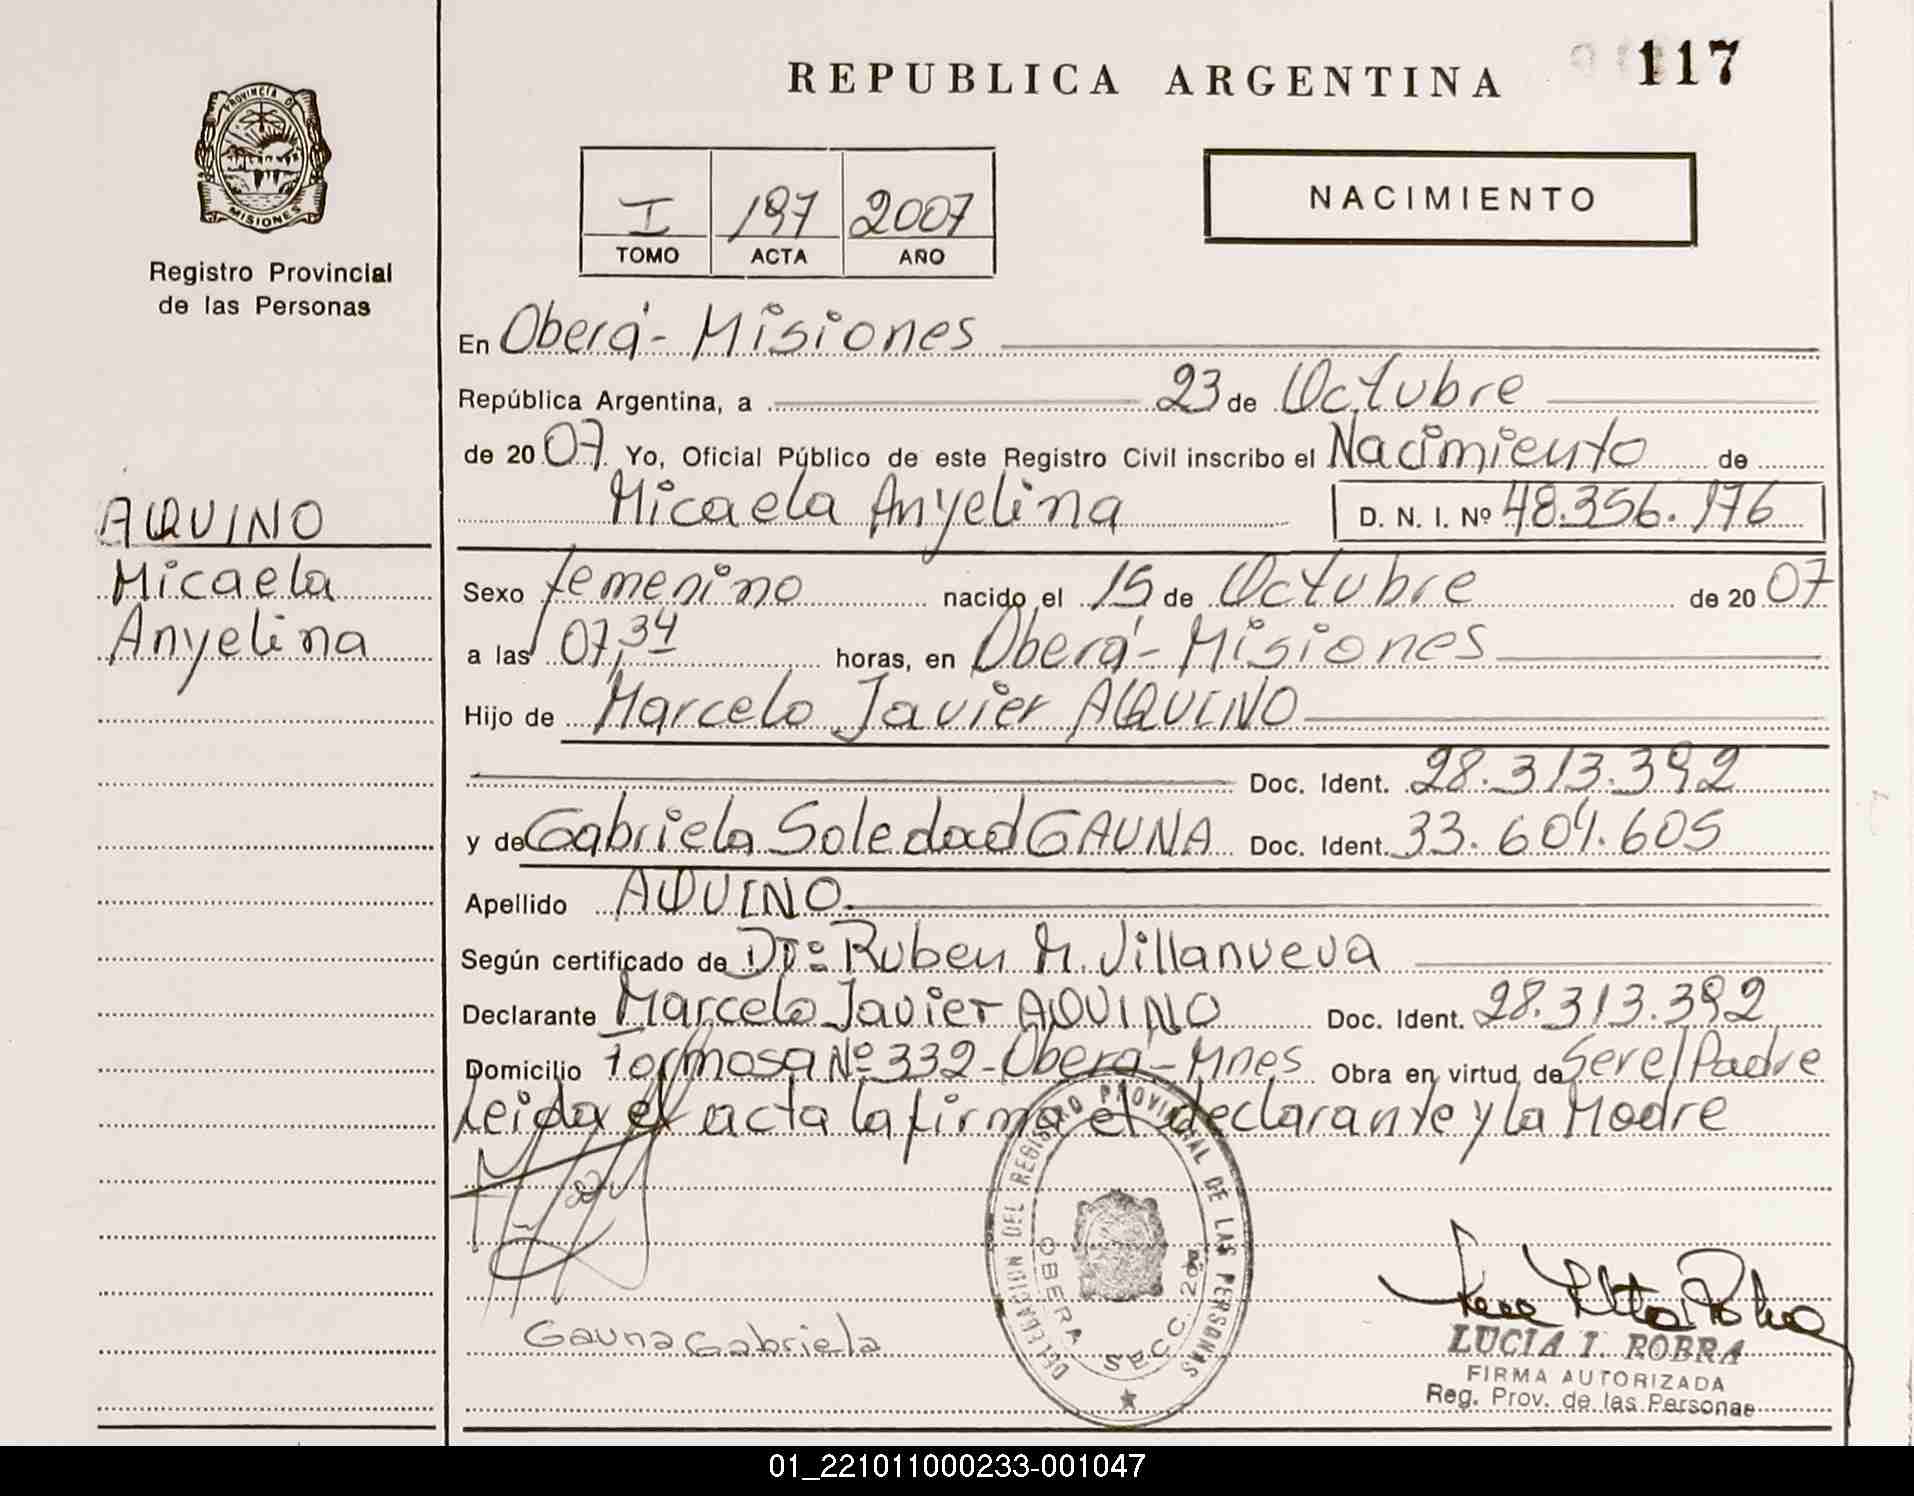 117
REPUBLICA ARGENTINA
PROVINCIA DE
MISIONES
Registro Provincial
de las Personas
I 197 2007
TOMO ACTA AÑO
NACIMIENTO
En Oberá - Misiones
República Argentina, a 23 de Octubre
de 2007 Yo, Oficial Público de este Registro Civil inscribo el Nacimiento de
Micaela Anyelina D. N. I. Nº 48.356.176
AQUINO
Micaela
Anyelina
Sexo femenino nacido el 15 de Octubre de 2007
a las 07,34 horas, en Oberá - Misiones
Hijo de Marcelo Javier AQUINO
Doc. Ident. 28.313.392
y de Gabriela Soledad GAUNA Doc. Ident. 33.601.605
Apellido AQUINO
Según certificado de Dr. Ruben M. Villanueva
Declarante Marcelo Javier AQUINO Doc. Ident. 28.313.392
Domicilio Formosa Nº 332 - Oberá - Mnes Obra en virtud de Ser el Padre
Leida el acta la firma el declarante y la Madre
DELEGACION DEL REGISTRO PROVINCIAL DE LAS PERSONAS
OBERA SECC. 2da
Gauna Gabriela
LUCIA I. ROBRA
FIRMA AUTORIZADA
Reg. Prov. de las Personas
01_221011000233-001047